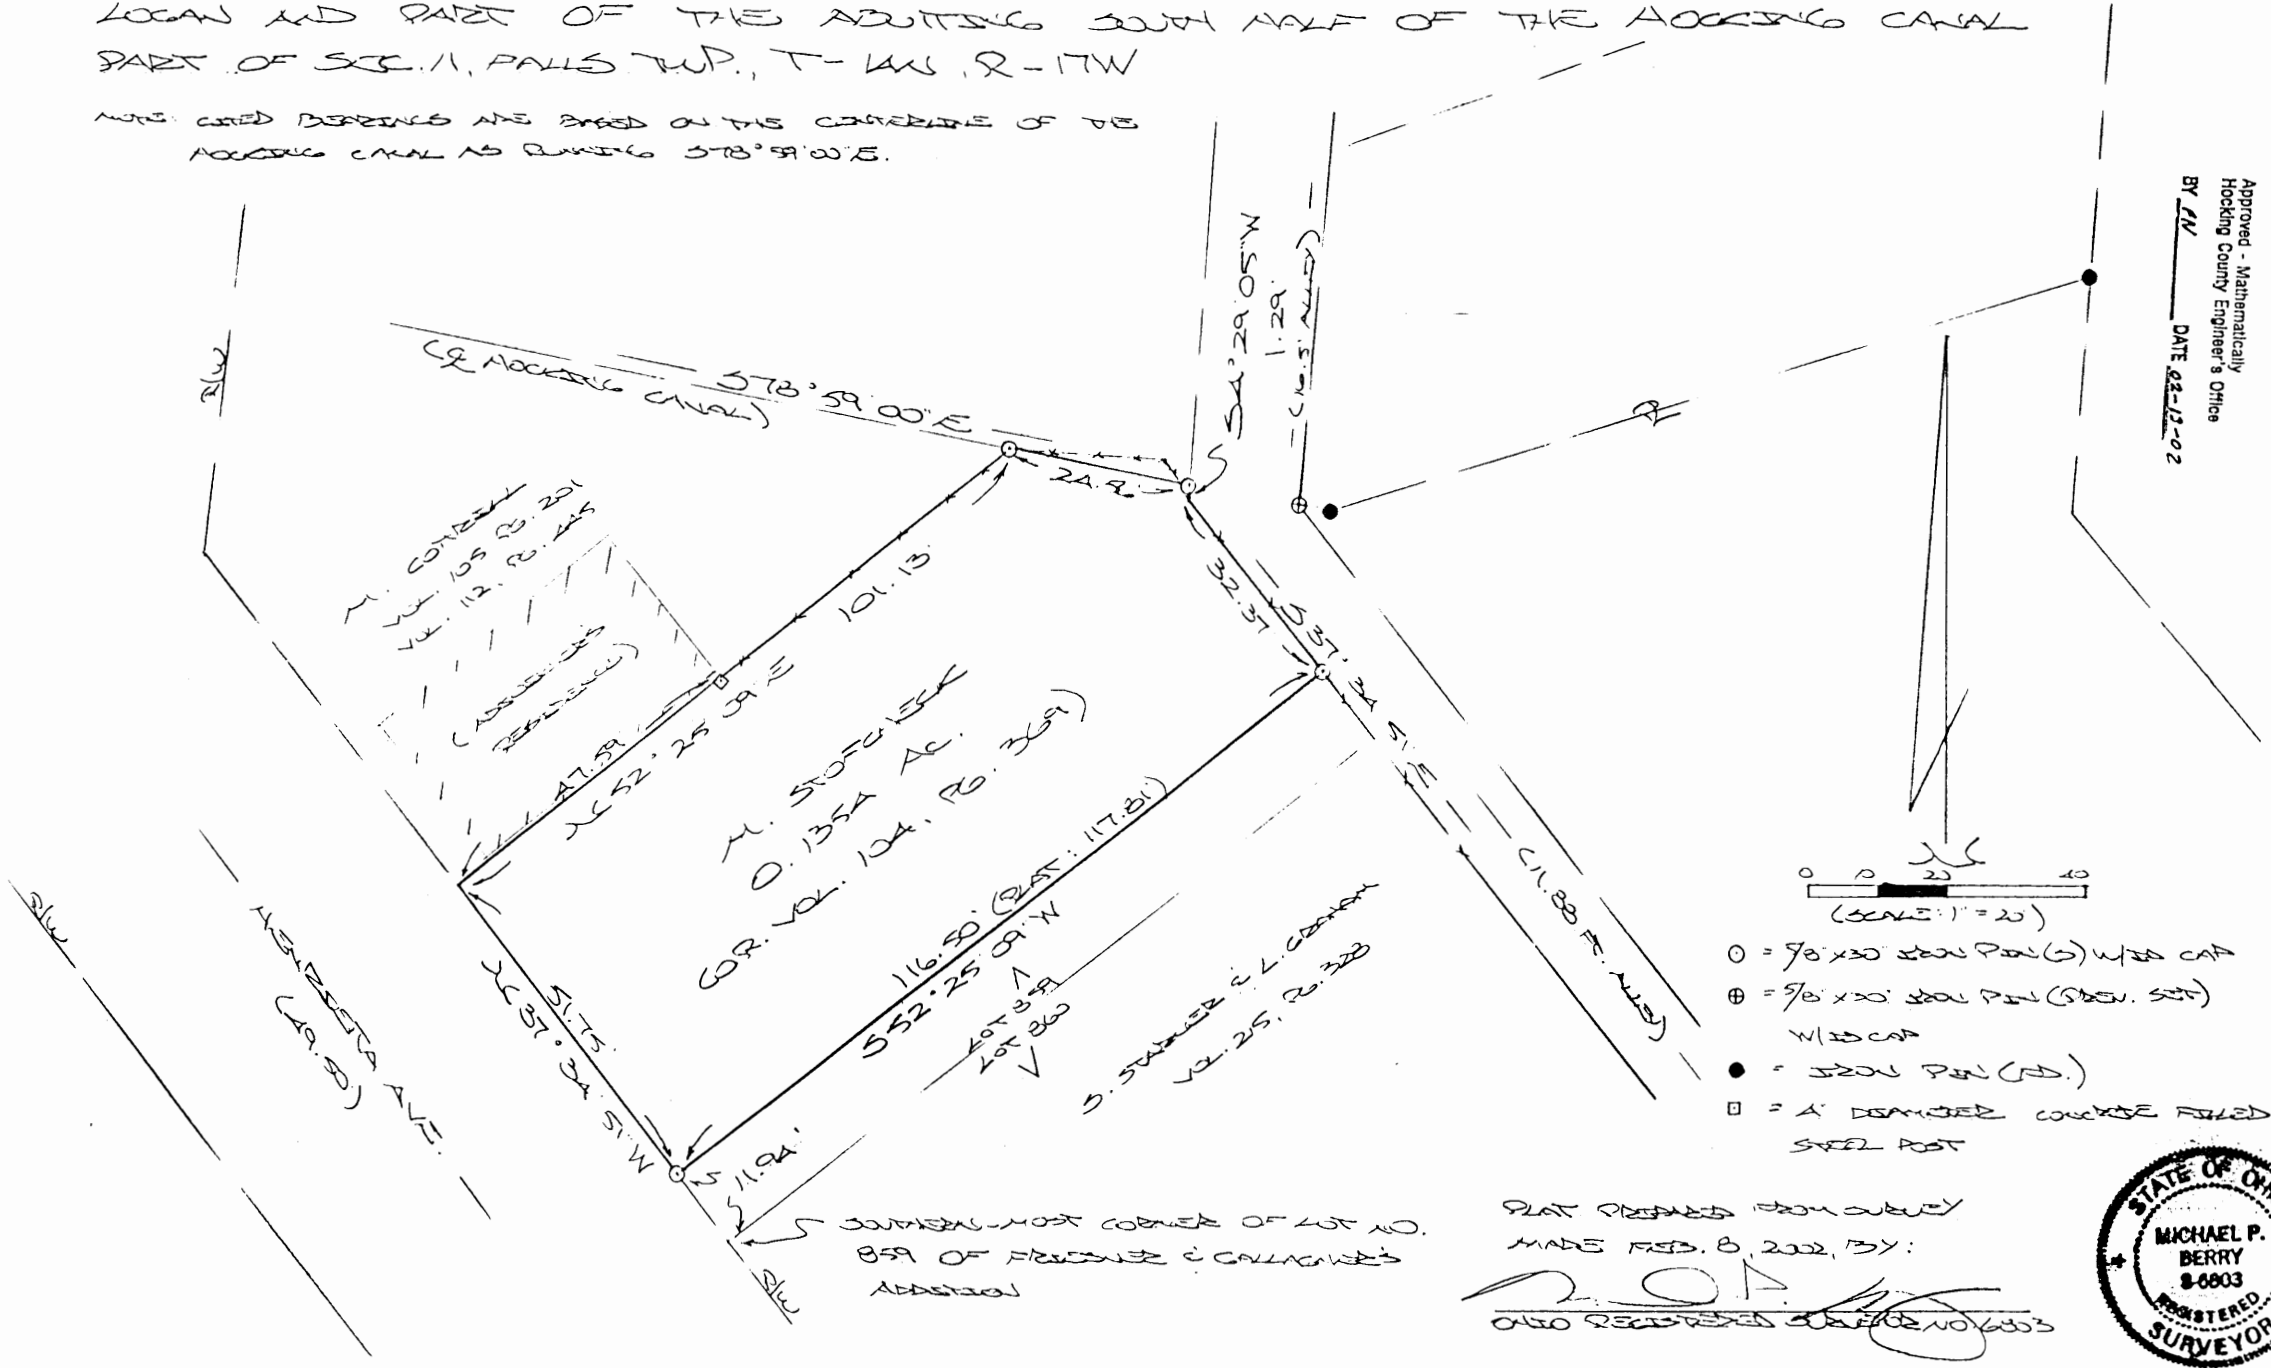 LOGAN AND PART OF THE ABUTTING SOUTH HALF OF THE HOCKING CANAL
PART OF SEC. 11, FALLS TWP., T-14N, R-17W
NOTE: CITED BEARINGS ARE BASED ON THE CENTERLINE OF THE
HOCKING CANAL AS RUNNING S78°59'00"E.
Approved - Mathematically
Hocking County Engineer's Office
BY PN DATE 02-13-02
R/W
(℄ HOCKING CANAL)
S78°59'00"E
S4°29'05"W
1.29'
(16.5' ALLEY)
24.
32.37'
S37°34'51"E
(11.88 FT. ALLEY)
M. CONTREY
VOL. 105 PG. 201
VOL. 112, PG. 445
RESIDENCE)
101.13'
47.59'
N52°25'09"E
M. STOFCHECK
0.1354 AC.
(O.R. VOL. 104, PG. 369)
116.50' (PLAT: 117.81')
S52°25'09"W
LOT 859
LOT 860
VOL. 25, PG. 328
51.75'
N37°34'51"W
11.94'
AVE.
(49.50')
R/W
R/W
SOUTHERN-MOST CORNER OF LOT NO.
859 OF & GALLAGHER'S
ADDITION
N
0 10 20 40
(SCALE: 1" = 20')
⊙ = 5/8"X30" IRON PIN(S) W/ID CAP
⊕ = 5/8"X30" IRON PIN (PREV. SET)
W/ID CAP
● = IRON PIN (FD.)
⊡ = 4" DIAMETER CONCRETE FILLED
STEEL POST
PLAT PREPARED FROM SURVEY
MADE FEB. 8, 2002, BY:
OHIO REGISTERED SURVEYOR NO. 6803
STATE OF
MICHAEL P.
BERRY
S-6803
REGISTERED
SURVEYOR